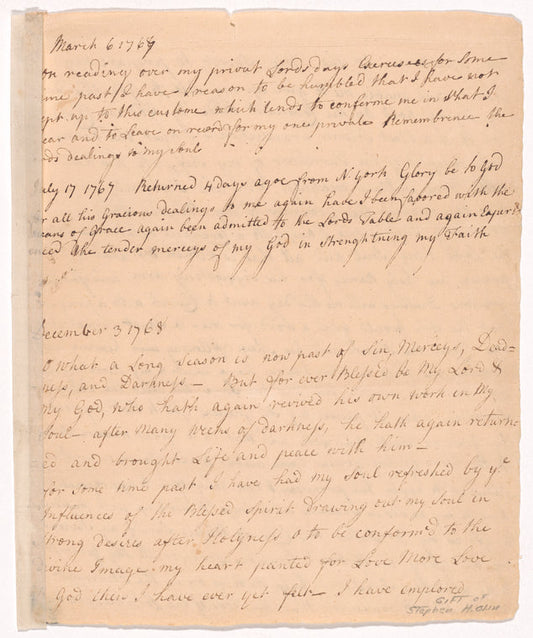 March 6 1767
on reading over my privat Lords days Exercises for Some
time past I have reason to be humbled that I have not
kept up to this custome which tends to conferme me in what I
hear and to Leave on record for my one private Remembrence the
Lords dealings to my soul
July 17 1767 Returned 4 days agoe from N York Glory be to God
for all his Gracious dealings to me again have I been favored with the
means of Grace again been admitted to the Lords Table and again Experi=
the tender merceys of my God in strenghtning my Faith
December 3 1768
O What a Long Season is now past of Sin, Merceys, Dead=
ness, and Darkness — But for ever Blessed be My Lord &
My God, who hath again revived his own work in My
Soul — after Many Weeks of darkness, he hath again return
ed and brought Life and peace with him —
for some time past I have had my soul refreshed by ye
Influences of the Blessed Spirit drawing out my Soul in
strong desires after Holyness o to be conform'd to the
Divine Image my heart panted for Love More Love
God then I have ever yet felt I have implored
Gift of
Stephen H. Olin